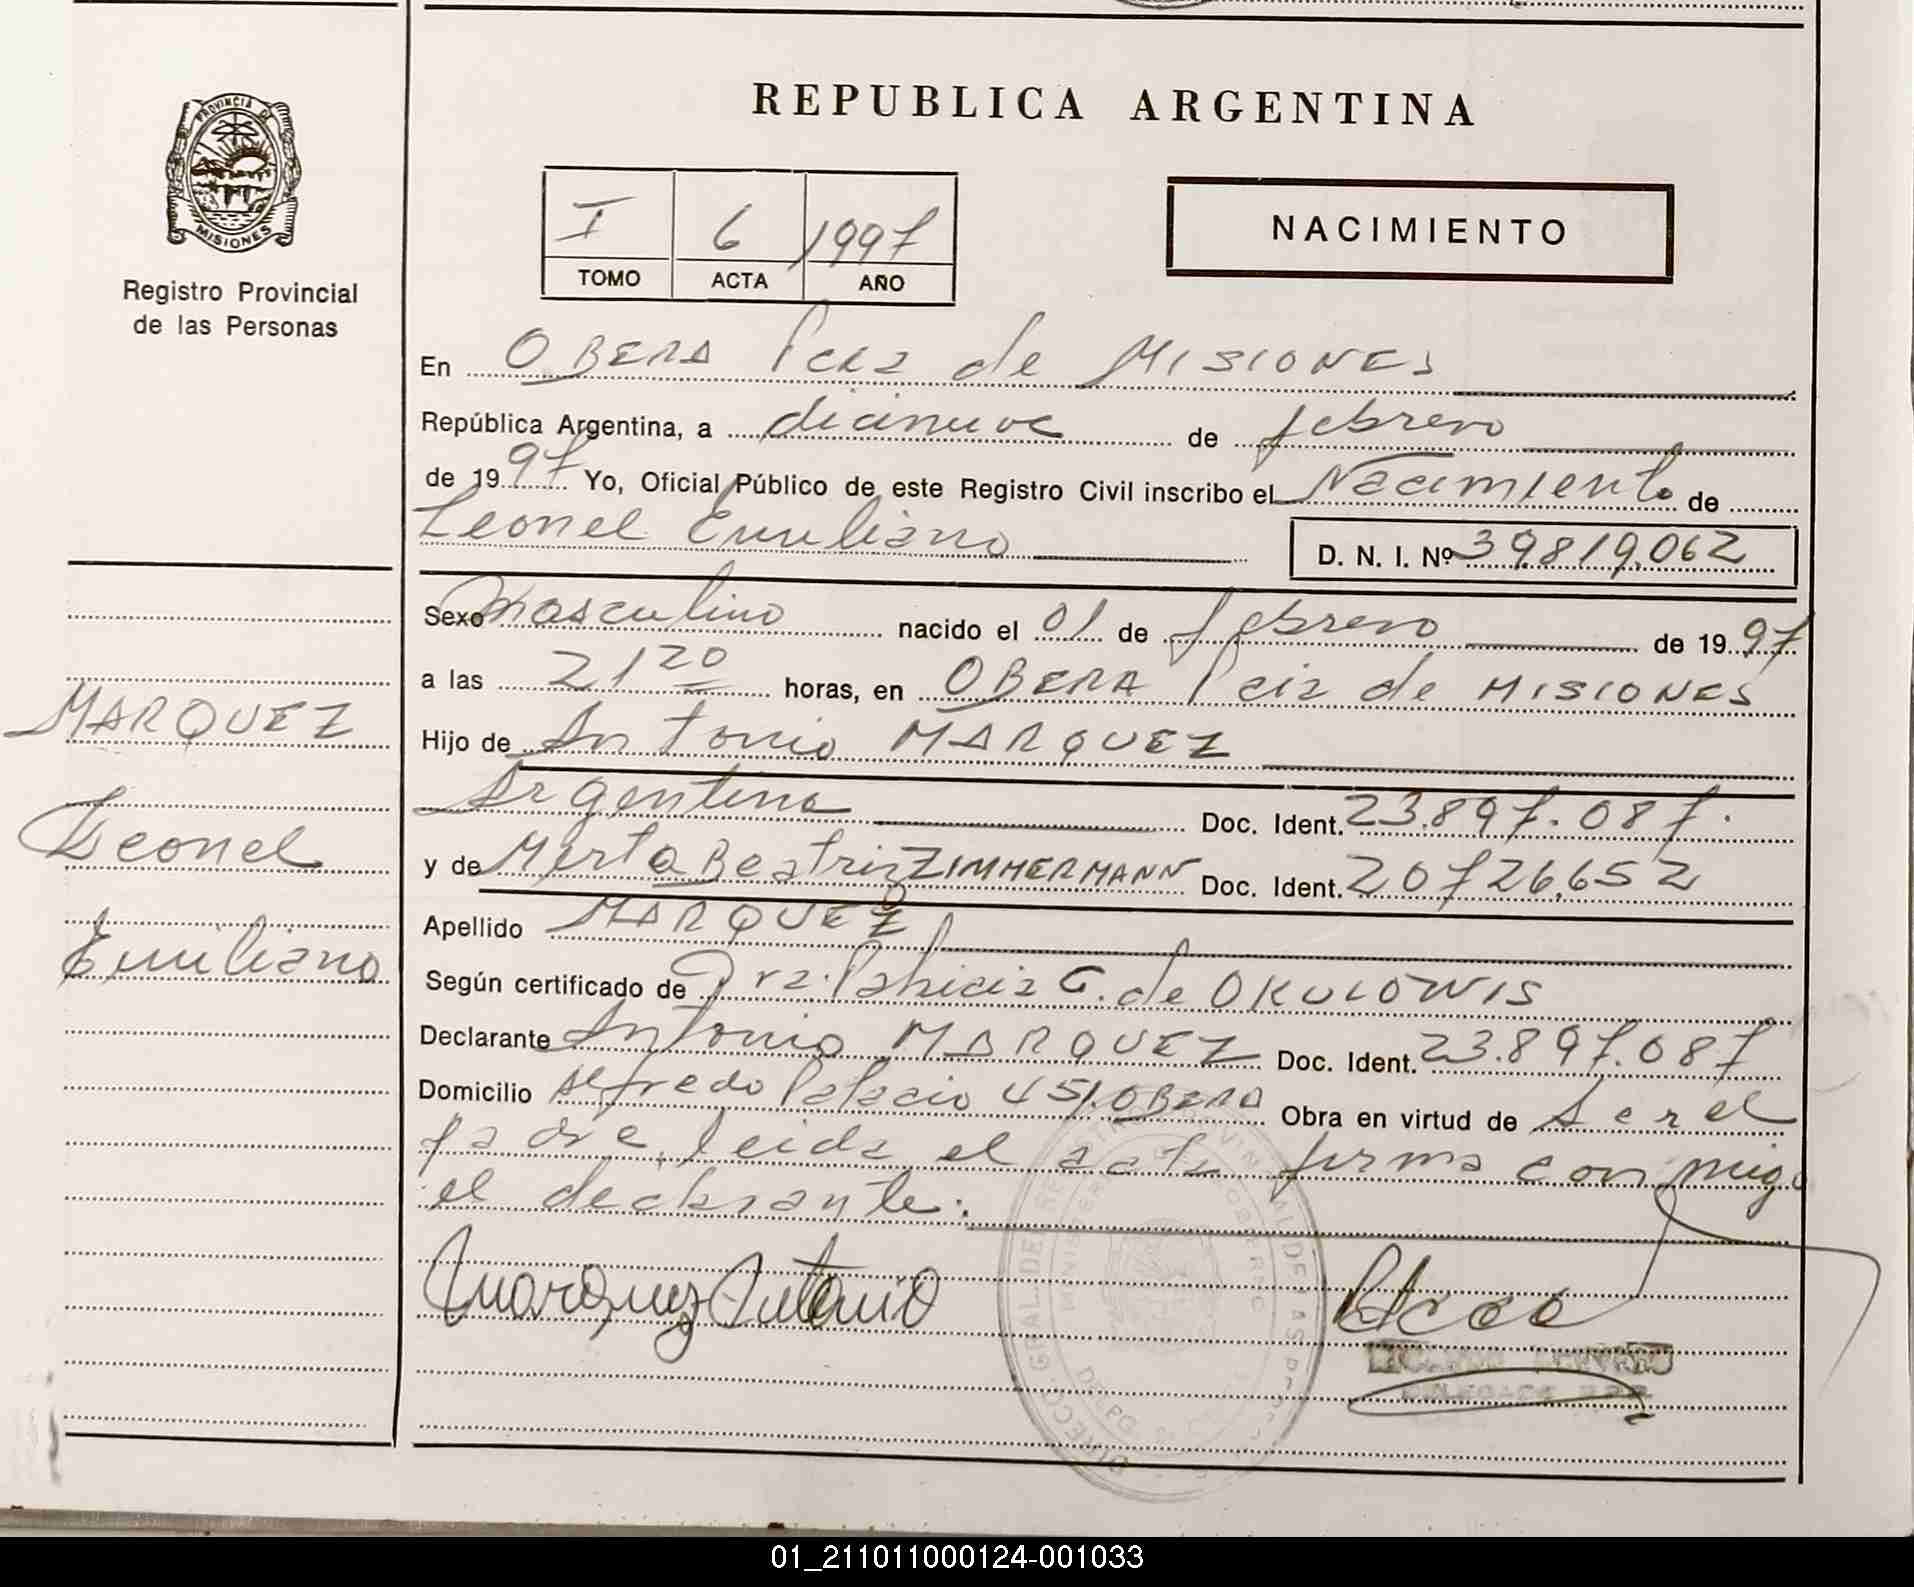 REPUBLICA ARGENTINA
PROVINCIA DE
MISIONES
Registro Provincial
de las Personas
I 6 1997
TOMO ACTA AÑO
NACIMIENTO
En OBERA Pcia de MISIONES
República Argentina, a diecinueve de febrero
de 1997 Yo, Oficial Público de este Registro Civil inscribo el Nacimiento de
Leonel Emiliano D. N. I. Nº 39.819.062
Sexo Masculino nacido el 01 de febrero de 1997
a las 21 20 horas, en OBERA Pcia de MISIONES
Hijo de Antonio MARQUEZ
Argentina Doc. Ident. 23.897.087.
y de Mirta Beatriz ZIMMERMANN Doc. Ident. 20726.652
Apellido MARQUEZ
Según certificado de Dra. Patricia G. de OKULOWIS
Declarante Antonio MARQUEZ Doc. Ident. 23.897.087
Domicilio Alfredo Palacio 451. OBERA Obra en virtud de ser el
padre, leida el acta firma conmigo
el declarante.
MARQUEZ
Leonel
Emiliano
Marquez Antonio
01_211011000124-001033